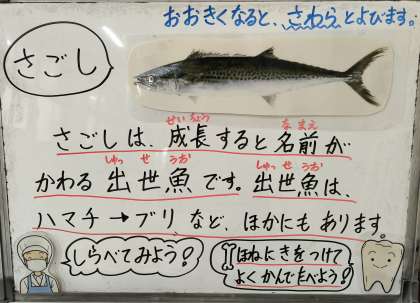 おおきくなると、さわらとよびます。
さごし
さごしは、成長すると名前が
せいちょう なまえ
かわる出世魚です。出世魚は、
しゅっせうお しゅっせうお
ハマチ→ブリなど、ほかにもあります。
しらべてみよう!
ほねにきをつけて
よくかんでたべよう!